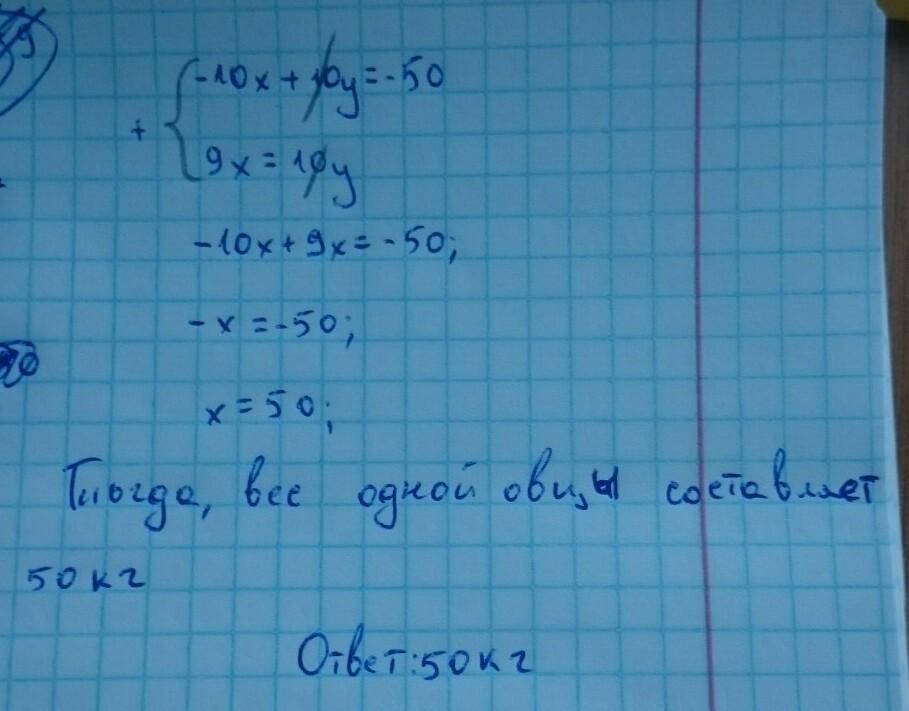 -10x + 10y = -50
+
9x = 10y
-10x + 9x = -50;
-x = -50;
x = 50;
Тогда, вес одной овцы составляет
50 кг
Ответ: 50 кг